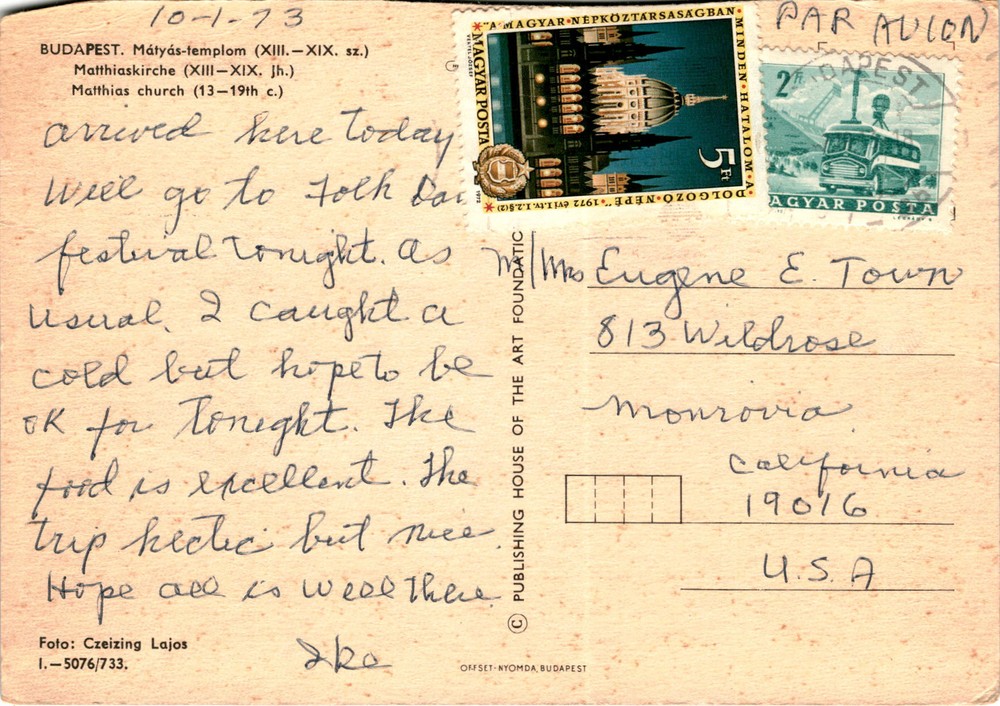 10-1-73
BUDAPEST. Mátyás-templom (XIII.—XIX. sz.)
Matthiaskirche (XIII—XIX. Jh.)
Matthias church (13—19th c.)
arrived here today
Will go to Folk Dan
festival tonight. As
usual, I caught a
cold but hope to be
OK for Tonight. The
food is excellent. The
trip hectic but nice.
Hope all is well there
Foto: Czeizing Lajos
I.—5076/733.
© PUBLISHING HOUSE OF THE ART FOUNDATIC
OFFSET-NYOMDA, BUDAPEST
PAR AVION
"A MAGYAR NÉPKÖZTÁRSASÁGBAN
MINDEN HATALOM A
DOLGOZÓ NÉPÉ" 1972 évi I. tv. I.2.§(2)
MAGYAR POSTA
5 Ft
1972
2 Ft
MAGYAR POSTA
BUDAPEST
M/Mrs Eugene E. Town
813 Wildrose
Monrovia
California
19016
U.S.A